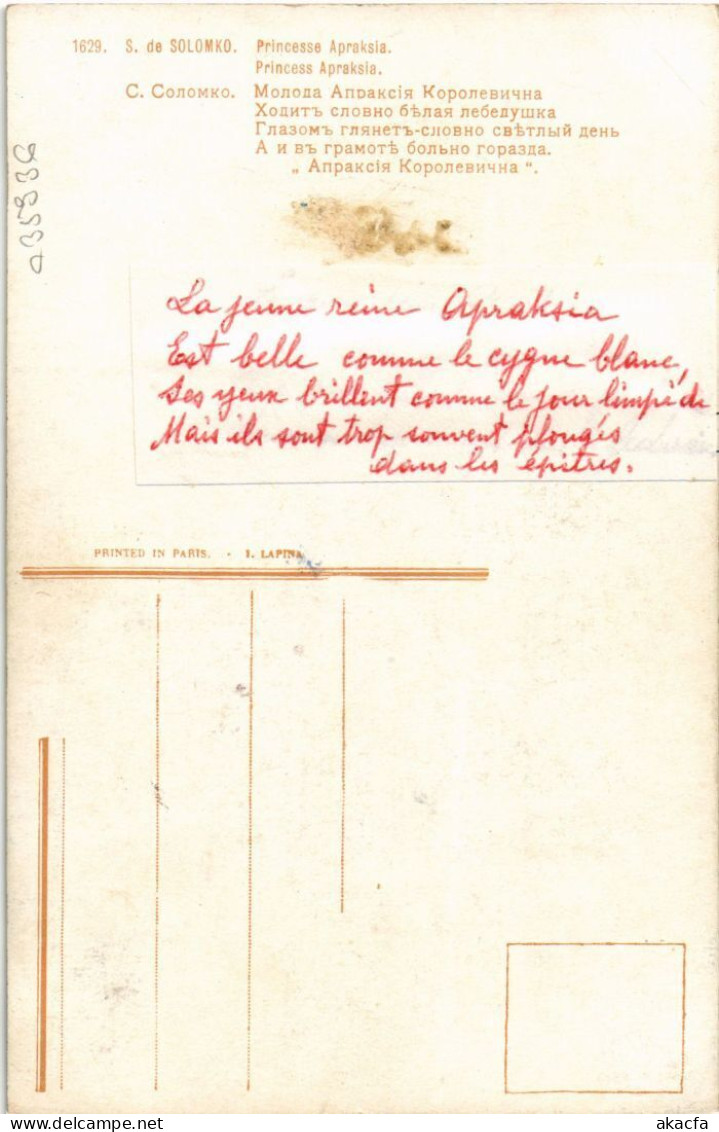 1629. S. de SOLOMKO. Princesse Apraksia.
Princess Apraksia.
С. Соломко. Молода Апраксія Королевична
Ходитъ словно бѣлая лебедушка
Глазомъ глянетъ-словно свѣтлый день
А и въ грамотѣ больно горазда.
„ Апраксія Королевична “.
La jeune reine Apraksia
Est belle comme le cygne blanc,
Ses yeux brillent comme le jour limpide
Mais ils sont trop souvent plongés
dans les épitres.
PRINTED IN PARIS. · I. LAPINA
www.delcampe.net
akacfa